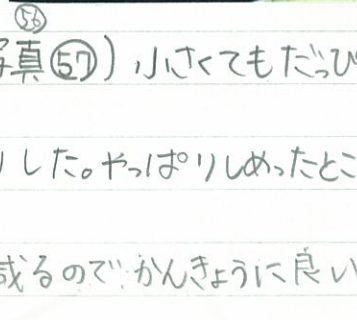 56
写真57)小さくてもだっぴ
りした。やっぱりしめったとこ
減るのでかんきょうに良い